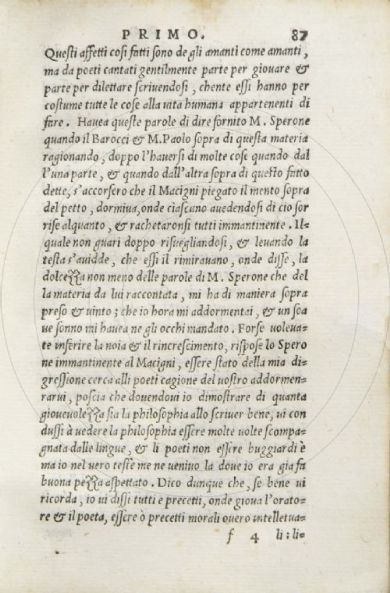 PRIMO. 87
Questi affetti cosi fatti sono de gli amanti come amanti,
ma da poeti cantati gentilmente parte per giovare &
parte per dilettare scrivendosi, chente essi hanno per
costume tutte le cose alla vita humana appartenenti di
fare. Havea queste parole di dire fornito M. Sperone
quando il Barocci & M. Paolo sopra di questa materia
ragionando, doppo l'haversi di molte cose quando dal
l'una parte, & quando dall'altra sopra di questo fatto
dette, s'accorsero che il Macigni piegato il mento sopra
del petto, dormiva, onde ciascuno avedendosi di cio sor
rise alquanto, & rachetaronsi tutti immantinente. Il-
quale non guari doppo risvegliandosi, & levando la
testa s'avidde, che essi il rimiravano, onde disse, la
dolcezza non meno delle parole di M. Sperone che del
la materia da lui raccontata, mi ha di maniera sopra
preso & vinto; che io hora mi addormentai, & un soa
ve sonno mi havea ne gli occhi mandato. Forse voleva-
te inferire la noia & il rincrescimento, rispose lo Spero
ne immantinente al Macigni, essere stato della mia di
gressione cerca alli poeti cagione del vostro addormen-
tarvi, poscia che dovendovi io dimostrare di quanta
giovevolezza sia la philosophia allo scriver bene, vi con
dussi à vedere la philosophia essere molte volte scompa-
gnata dalle lingue, & li poeti non essere buggiardi è
ma io nel vero teste me ne veniva la dove io era gia fa
buona pezza aspettato. Dico dunque che, se bene vi
ricorda, io vi dissi tutti e precetti, onde giova l'orato-
re & il poeta, essere ò precetti morali overo intelletua-
f 4 li: li-